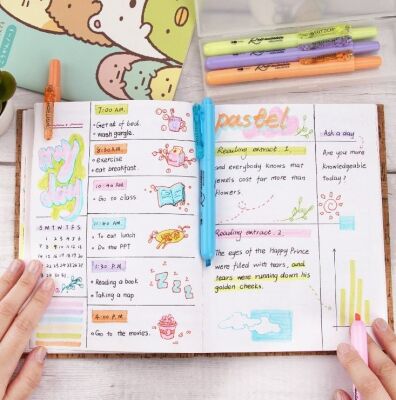 my
day
S M T W T F S
7:00 A.M.
Get out of bed.
wash gargle.
8:30 A.M.
exercise
eat breakfast.
10:40 A.M.
Go to class
11:40 A.M
To eat lunch
Do the PPT
1:30 P.M.
Reading a book
Taking a map
4:00 P.M.
Go to the movies.
pastel
Reading extract 1.
and everybody knows that
jewels cost far more than
flowers.
Reading extract 2.
The eyes of the Happy Prince
were filled with tears, and
tears were running down his
golden cheeks.
Ask a day
Are you more
knowledgeable
today?